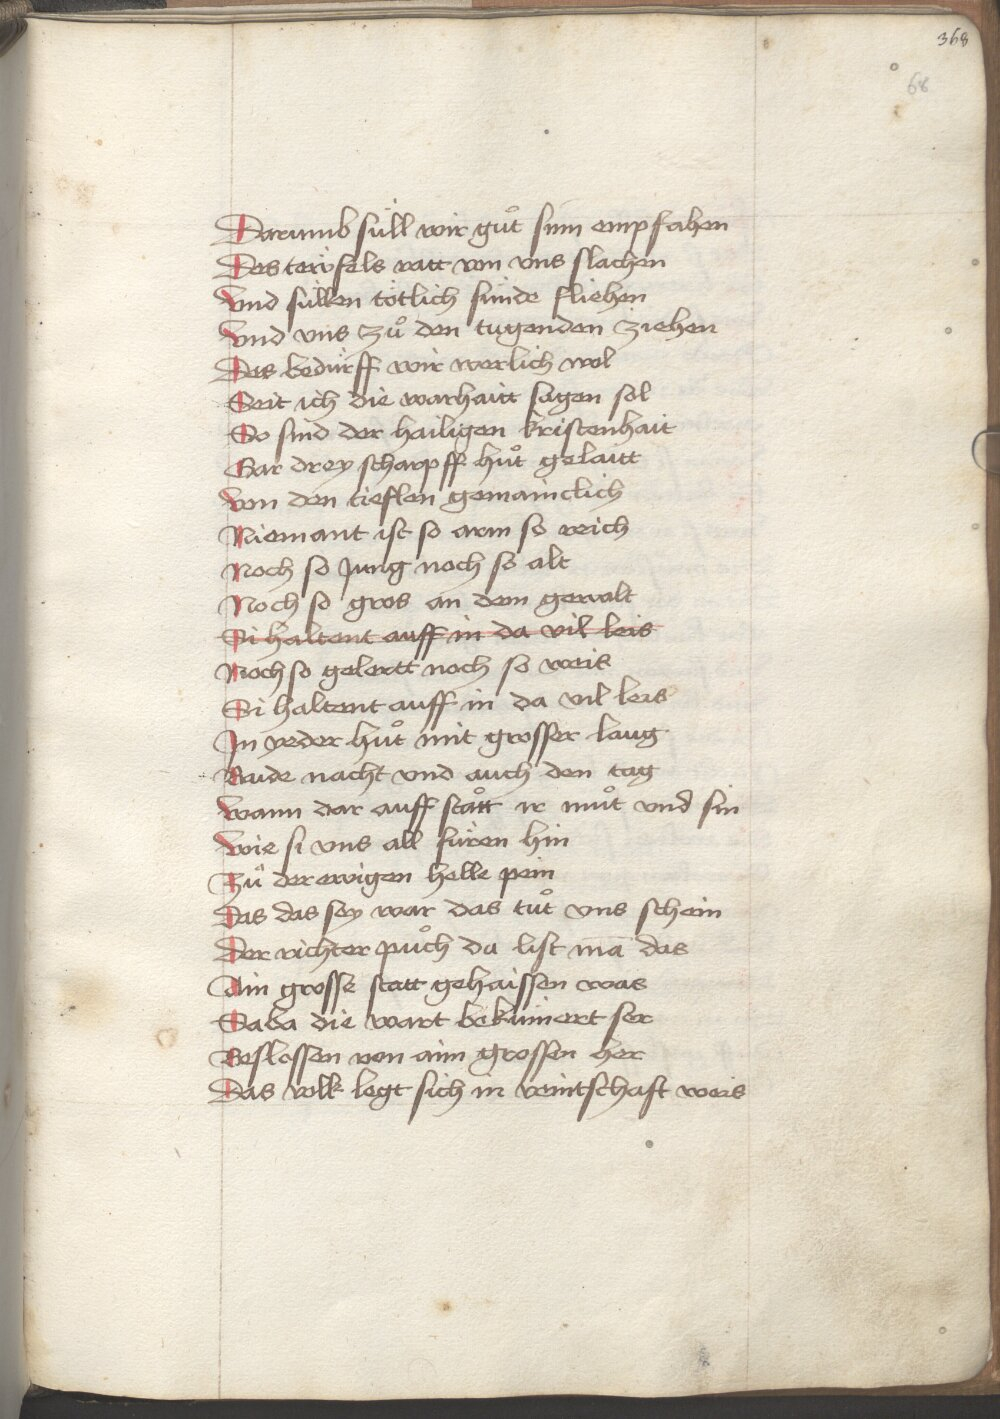 368
68
Darumb süll wir guͦt sinn empfahen
Des teẅfels ratt von vns slachen
Vnd süllen tötlich sünde fliehen
Vnd vns zuͦ den tugenden ziehen
Des bedürff wir werlich wol
Seit ich die warhaitt sagen sol
So sind der hailigen kristenhait
Gar drey scharpff huͦt gelaitt
Von den tieflen gemainclich
Niemant ist so arm so reich
Noch so Jung noch so alt
Noch so gros an dem gewalt
Si haltent auff in da vil leis
Noch so gelertt noch so weis
Si haltent auff in da vil leis
In yeder huͦt mit grosser laug
Baide nacht vnd auch den tag
Wann dar auff staͦtt ir muͦt vnd sin
Wie si vns all füren hin
Zuͦ der ewigen helle pein
Das das sey war das tuͦt vns schein
Der richter puͦch da list mā das
Ain grosse statt gehaissen was
Saba die wart bekümert ser
Beslossen von aim grossen her
Das volk legt sich in veintschaft weis